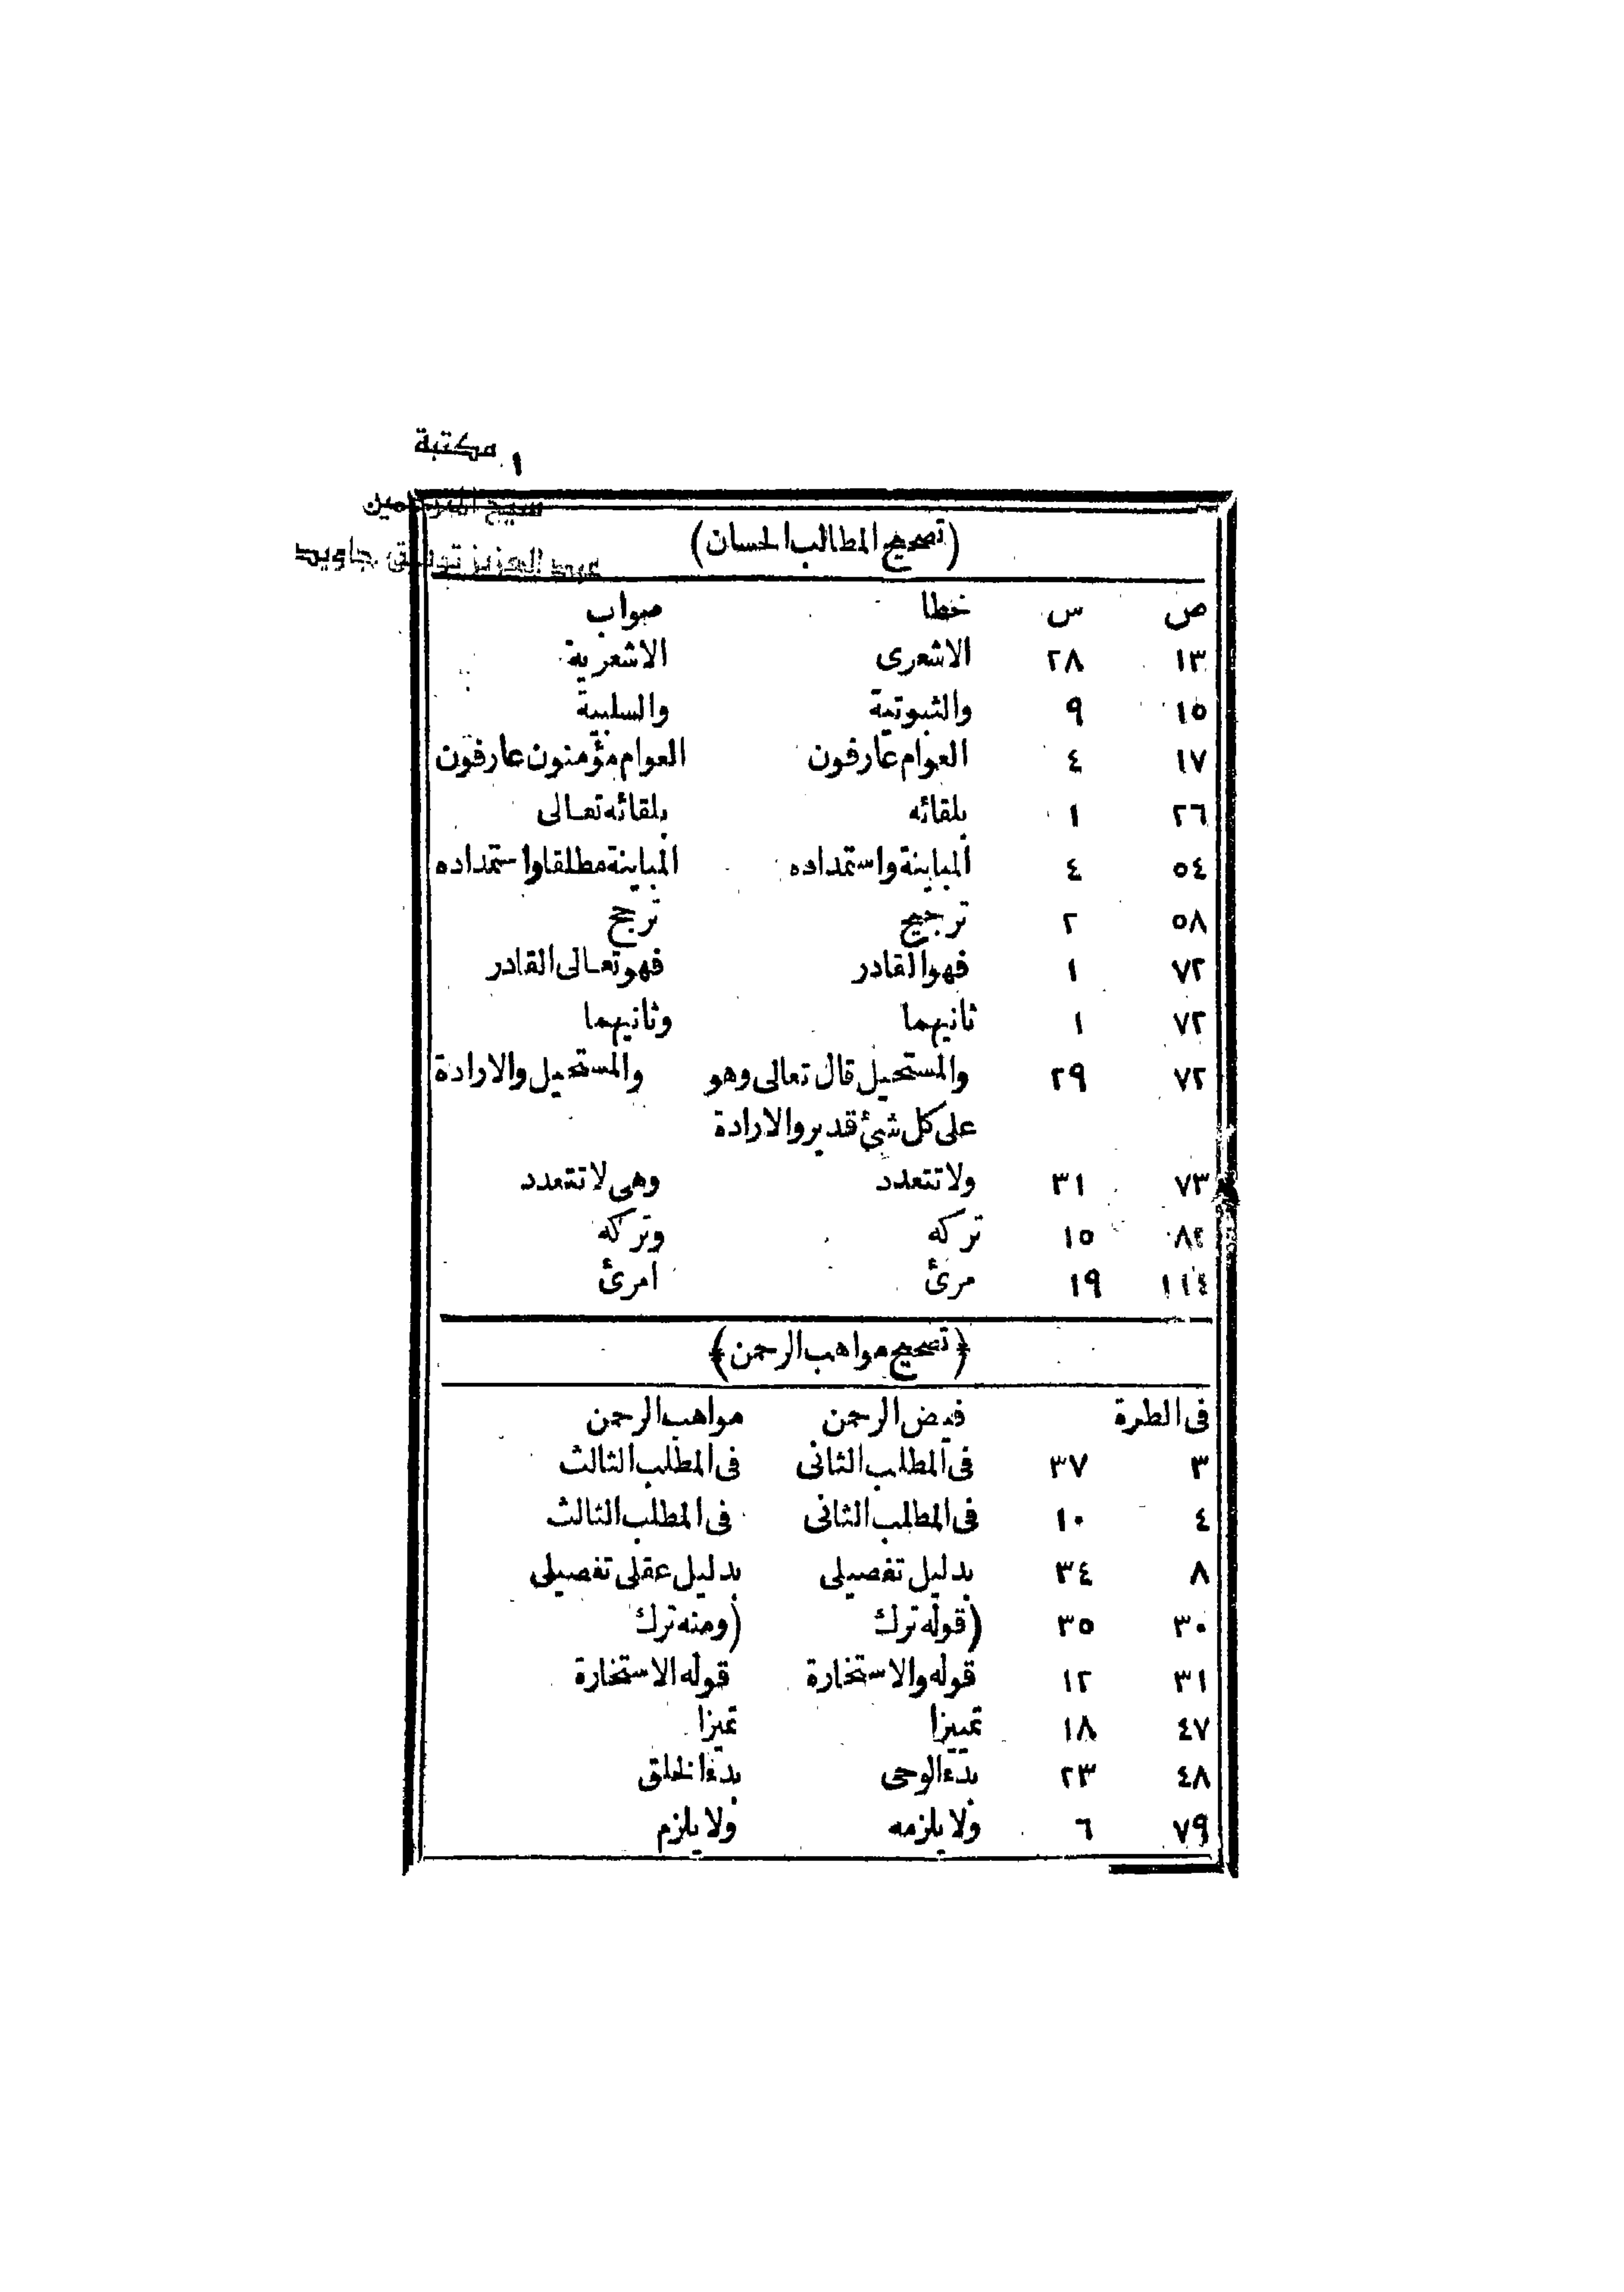 مكتبة
شيخ المترجمين
عبد العزيز توفيق جاويد
(تصحيح المطالب الحسان)
ص س خطا صواب
١٣ ٢٨ الاشعرى الاشعرية
١٥ ٩ والثبوتية والسلبية
١٧ ٤ العوام عارفون العوام مؤمنون عارفون
٢٦ ١ بلقائه بلقائه تعالى
٥٤ ٤ المباينة واستمداده المباينة مطلقا واستمداده
٥٨ ٢ ترجيح ترجح
٧٢ ١ فهو القادر فهو تعالى القادر
٧٢ ١ ثانيهما وثانيهما
٧٢ ٢٩ والمستحيل قال تعالى وهو والمستحيل والارادة
على كل شئ قدير والارادة
٧٣ ٣١ ولا تتعدد وهى لا تتعدد
٨٢ ١٥ تركه وتركه
١١٤ ١٩ مرئ امرئ
﴿تصحيح مواهب الرحمن﴾
فى الطرة فيض الرحمن مواهب الرحمن
٣ ٣٧ فى المطلب الثانى فى المطلب الثالث
٤ ١٠ فى المطلب الثانى فى المطلب الثالث
٨ ٣٤ بدليل تفصيلى بدليل عقلى تفصيلى
٣٠ ٣٥ (قوله ترك (ومنه ترك
٣١ ١٢ قوله والاستخارة قوله الاستخارة
٤٧ ١٨ تمييزا تميزا
٤٨ ٢٣ بدء الوحى بدء الخلق
٧٩ ٦ ولا يلزمه ولا يلزم